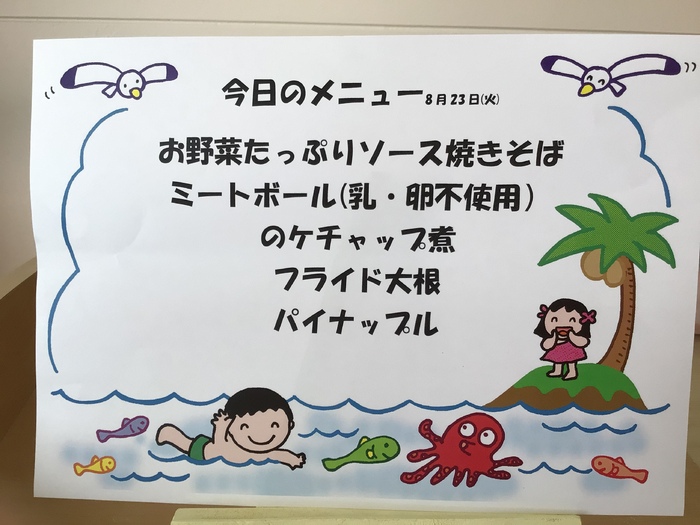 今日のメニュー 8月23日(火)
お野菜たっぷりソース焼きそば
ミートボール(乳・卵不使用)
のケチャップ煮
フライド大根
パイナップル